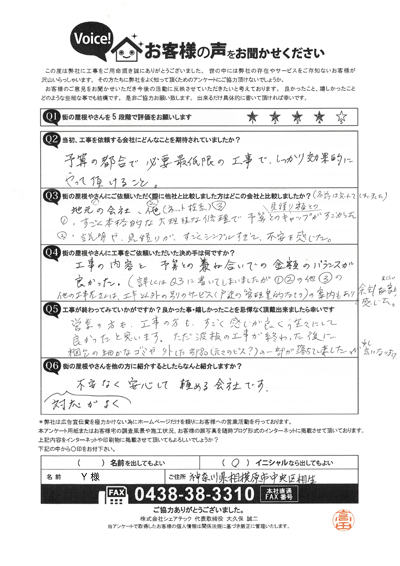 Voice!
お客様の声をお聞かせください
この度は弊社に工事をご用命頂き誠にありがとうございました。世の中には弊社の存在やサービスをご存知ないお客様が
沢山いらっしゃいます。その方たちに弊社をよく知って頂くためのアンケートにご協力頂けないでしょうか。
お客様のご意見をお聞かせいただき今後の活動に反映させていただきたいと考えております。良かったこと、嬉しかったこと
どのような些細な事でも結構です。是非ご協力お願い致します。出来るだけ具体的に書いて頂ければ幸いです。
Q1 街の屋根やさんを5段階で評価をお願いします
★ ★ ★ ★ ☆
Q2 当初、工事を依頼する会社にどんなことを期待されていましたか?
予算の都合で必要最低限の工事で、しっかり効果的に
やって頂けること。
Q3 街の屋根やさんにご依頼いただく前に他社と比較しました方はどこの会社と比較しましたか?
地元の会社
①、すごく本格的な大規模な修理で予算とのギャップがすごかった
Q4 街の屋根やさんにご依頼いただいた決め手は何ですか?
工事の内容と予算との兼ね合いでの金額のバランスが
良かった。(詳しくはQ3に書いてしまいましたが①②の他③の
感じた。
Q5 工事が終わってみていかがですか?良かった事・嬉しかったことを忌憚なく頂戴出来ましたら幸いです
営業の方も、工事の方も、すごく感じが良く
良かったと思います。ただ波板の工事が終わった後に
Q6 街の屋根やさんを他の方に紹介するとしたらなんと紹介しますか?
不安なく安心して頼める会社です。
対応がよく
※弊社は広告宣伝費を極力かけない為にホームページだけを頼りにお客様への営業活動を行っております。
本アンケート用紙またはお客様宅の調査風景や施工状況、お客様の顔写真を随時ブログ形式のインターネットに掲載させて頂いております。
上記内容をインターネットや印刷物に掲載させて頂いてもよろしいでしょうか?
下記の中から〇印をお付下さい。
( )名前を出してもよい ( 〇 )イニシャルなら出してもよい
名前 Y様 ご住所 神奈川県相模原市中央区相生
FAX 0438-38-3310 本社直通 FAX番号
ご協力ありがとうございました。
株式会社シェアテック 代表取締役 大久保 誠二
当アンケートで取得したお客様の個人情報は関係法規に基づき厳正に管理いたします。